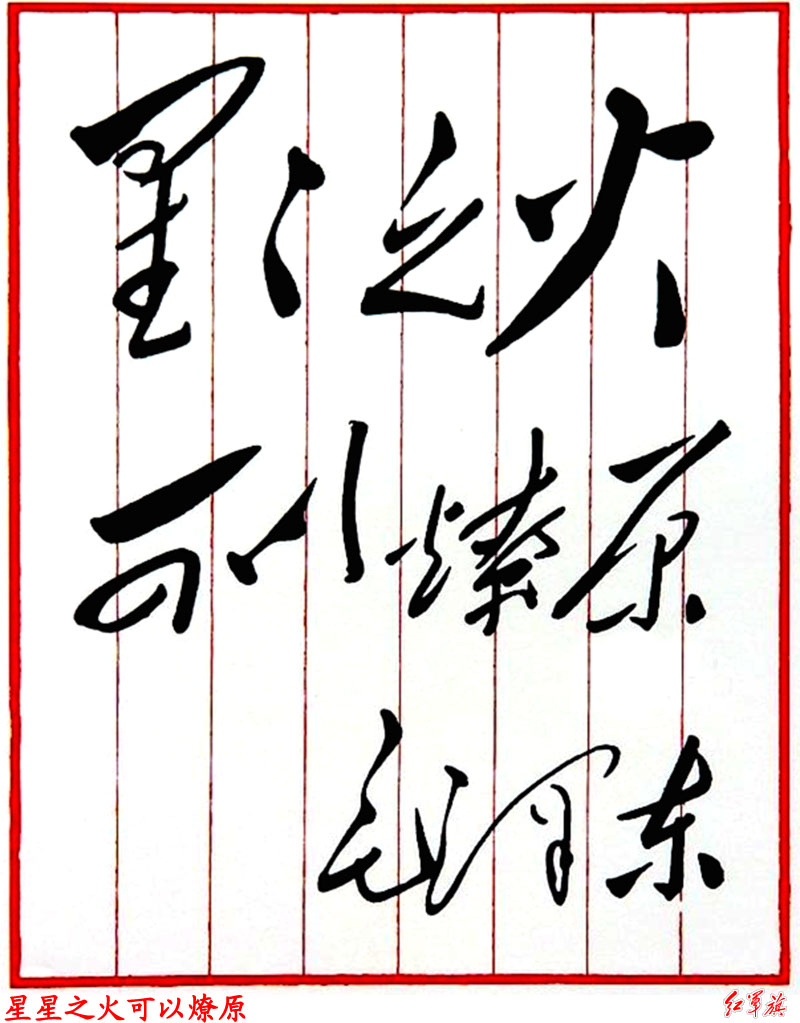 星星之火
可以燎原
毛泽东
星星之火可以燎原
红军旗